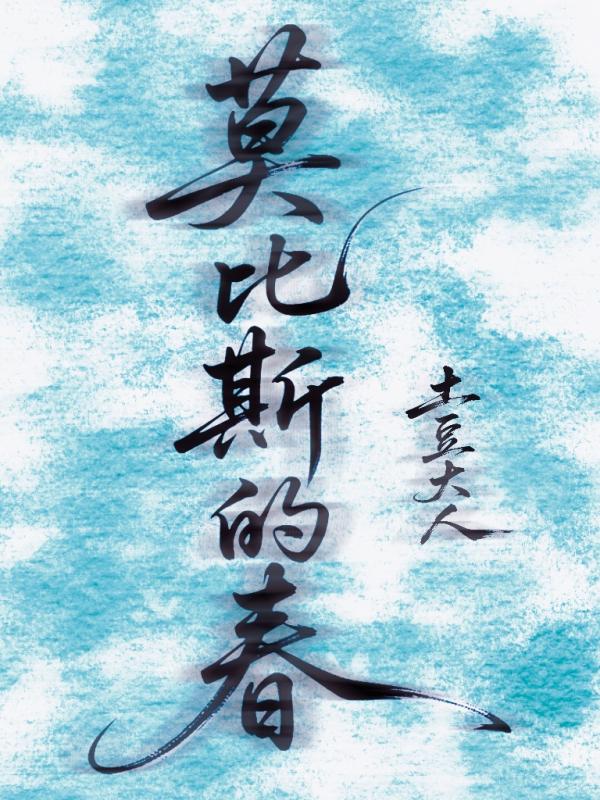 莫比斯的春
土豆大人